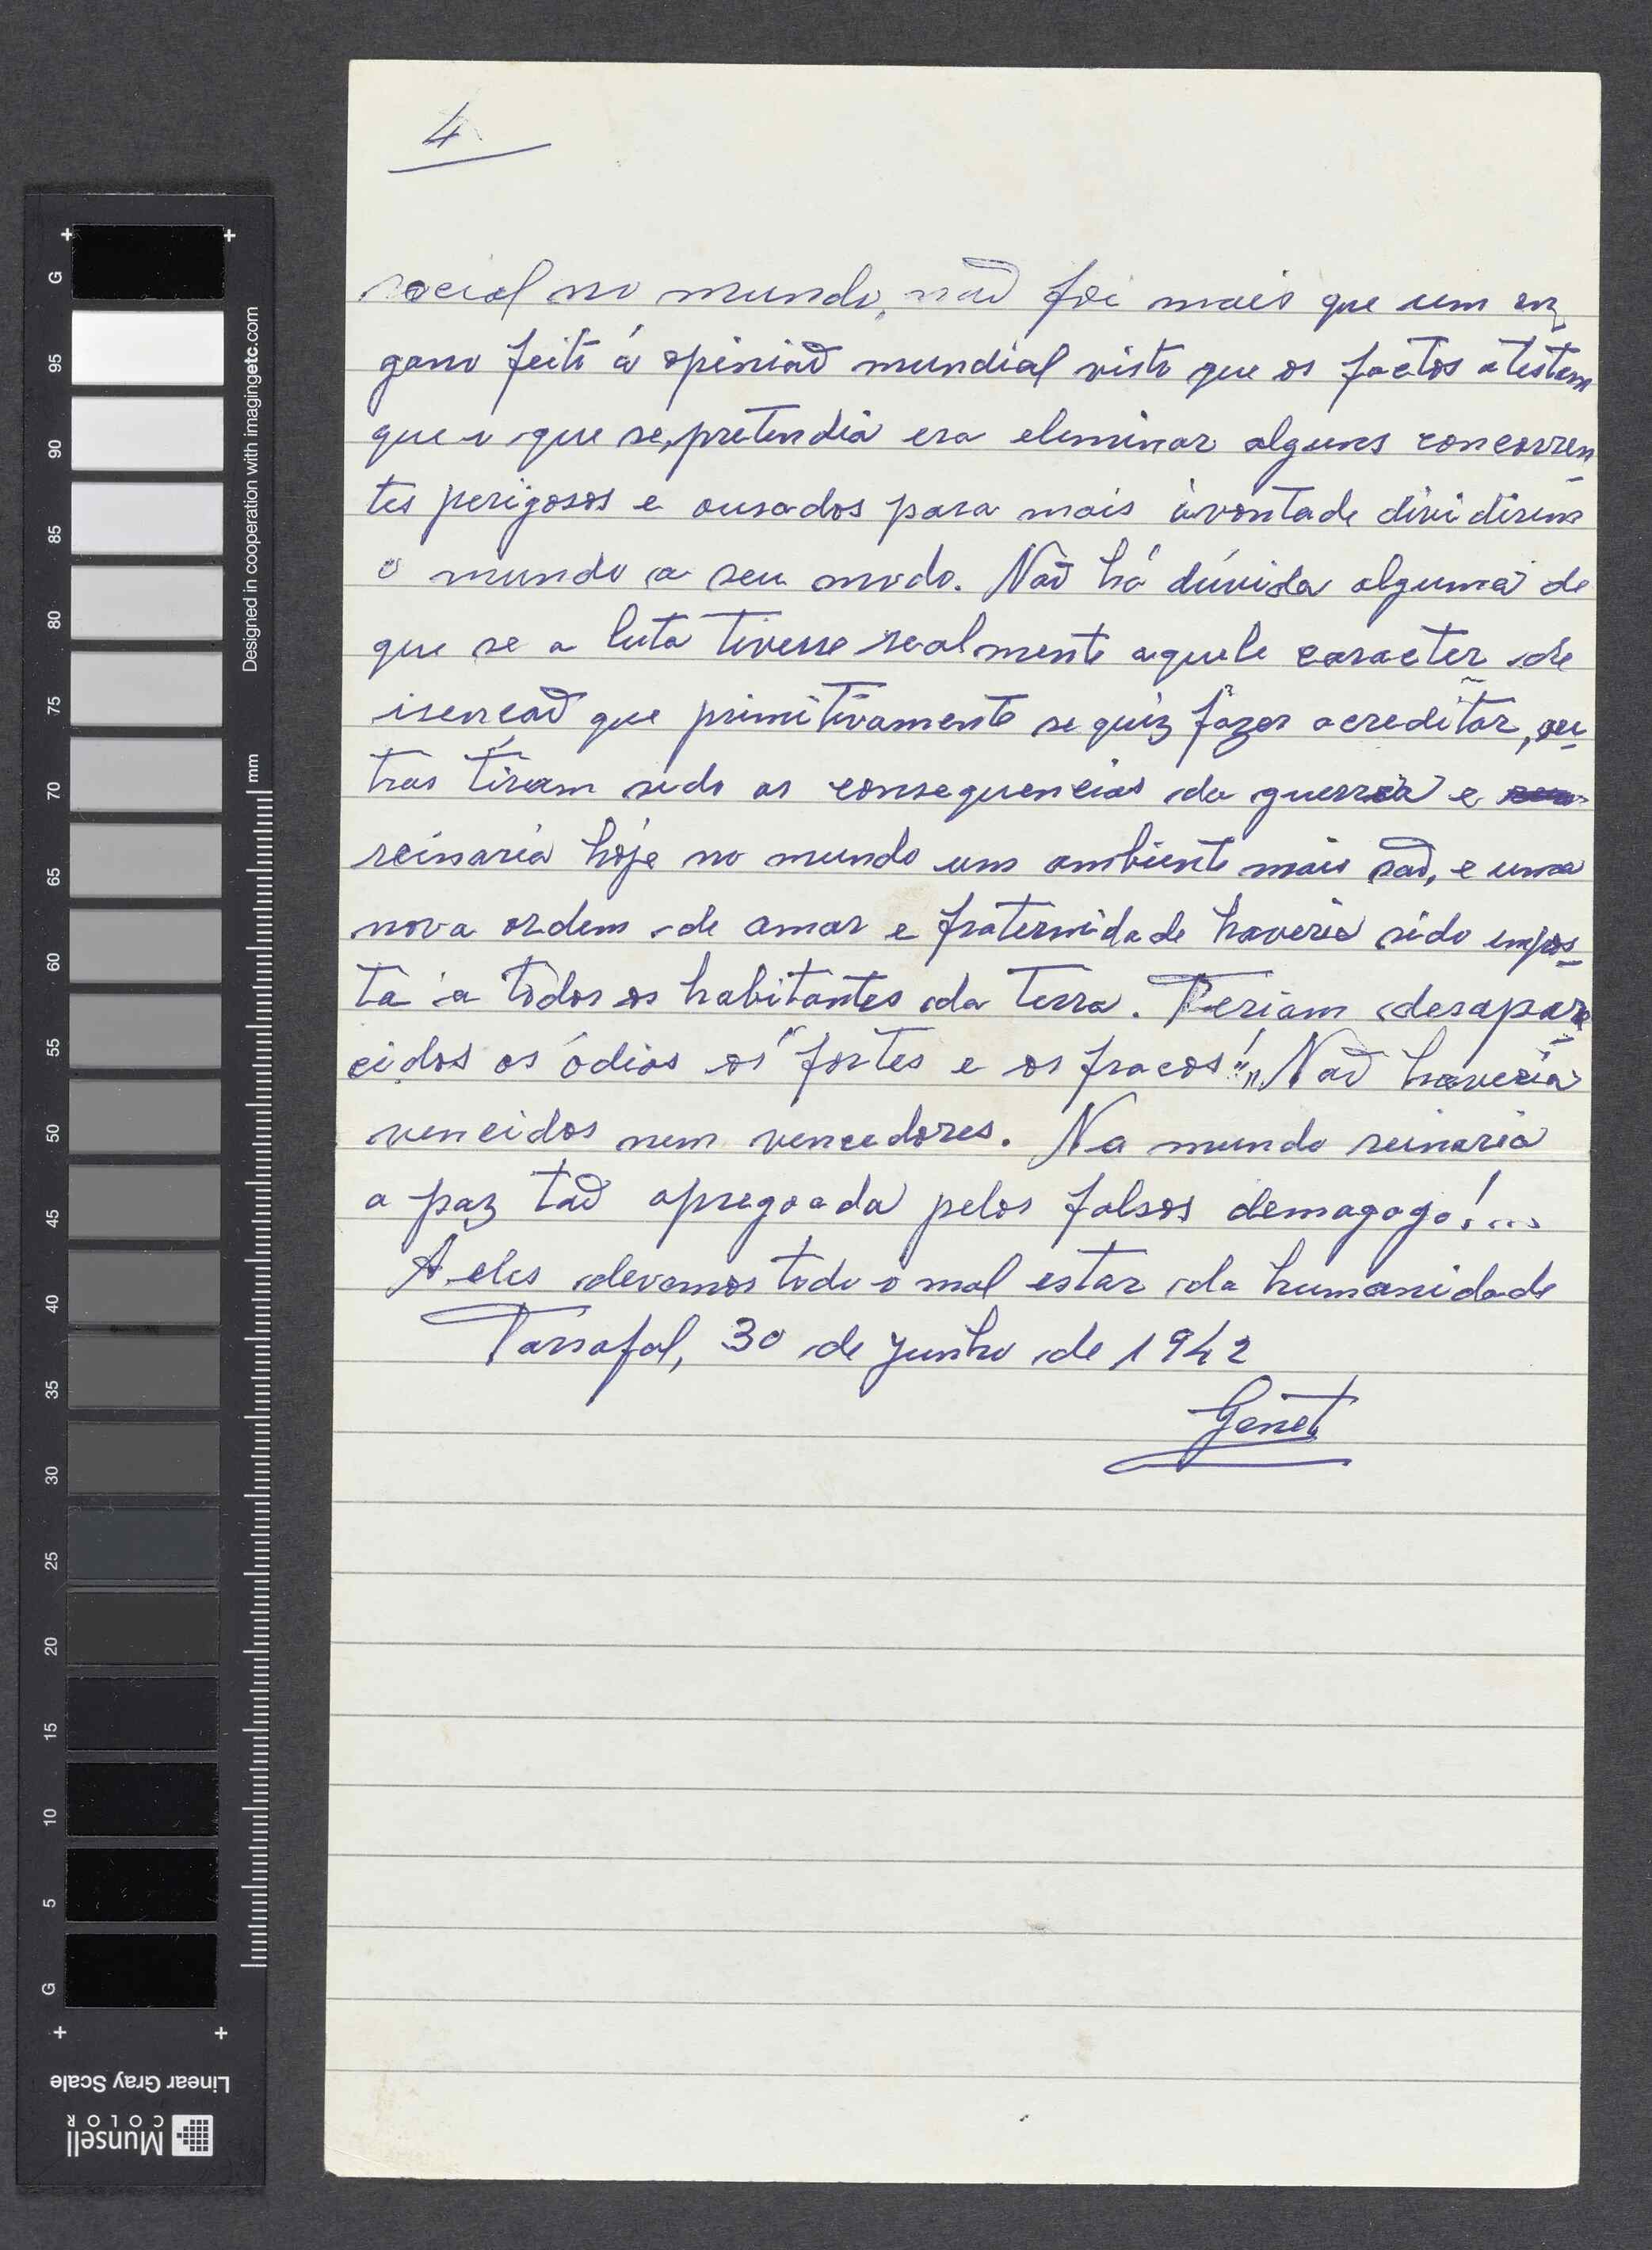 4
social no mundo, não foi mais que um en
gano feito á opinião mundial visto que os factos atestam
que o que se pretendia era eleminar alguns concorren
tes perigosos e ousados para mais àvontade dividirem
o mundo a seu modo. Não há dúvida alguma de
que se a luta tivesse realmente aquele caracter de
isencão que primitivamente se quiz fazer acreditar, ou-
tras tiriam sido as consequencias da guerra e
reinaria hoje no mundo um ambiente mais são, e uma
nova ordem de amor e fraternidade haveria sido impos-
ta a todos os habitantes da terra. Teriam desapare
cidos os ódios os "fortes e os fracos!" Não haveria
vencidos nem vencedores. No mundo reinaria
a paz tão apregoada pelos falsos demagogo!...
A eles devemos todo o mal estar da humanidade
Tarrafal, 30 de Junho de 1942
Genet
G 95 90 85 80 75 70 65 60 55 50 45 40 35 30 25 20 15 10 5 G
Designed in cooperation with imagingetc.com
mm
Linear Gray Scale
Munsell
COLOR